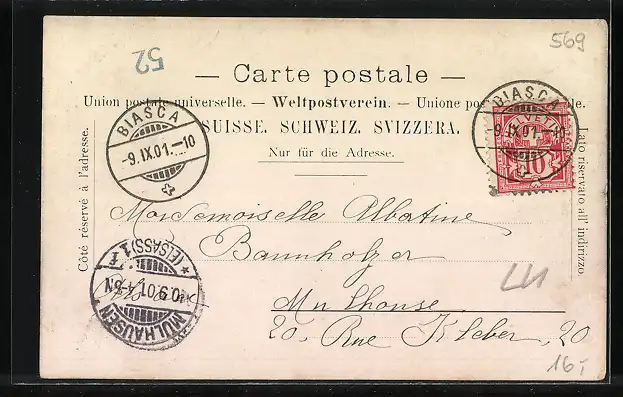 569
52
— Carte postale —
Union postale universelle. — Weltpostverein. — Unione postale universale.
SUISSE. SCHWEIZ. SVIZZERA.
Nur für die Adresse.
Côté réservé à l'adresse.
Lato riservato all' indirizzo.
BIASCA
-9.IX.01.-10
BIASCA
-9.IX.01.-10
HELVETIA
10
Mademoiselle Albertine
Bannholzer
Mulhouse
20. Rue Kleber, 20
MÜLHAUSEN
10.9.01.4-5N
* (ELSASS) 1 *
f
16.-